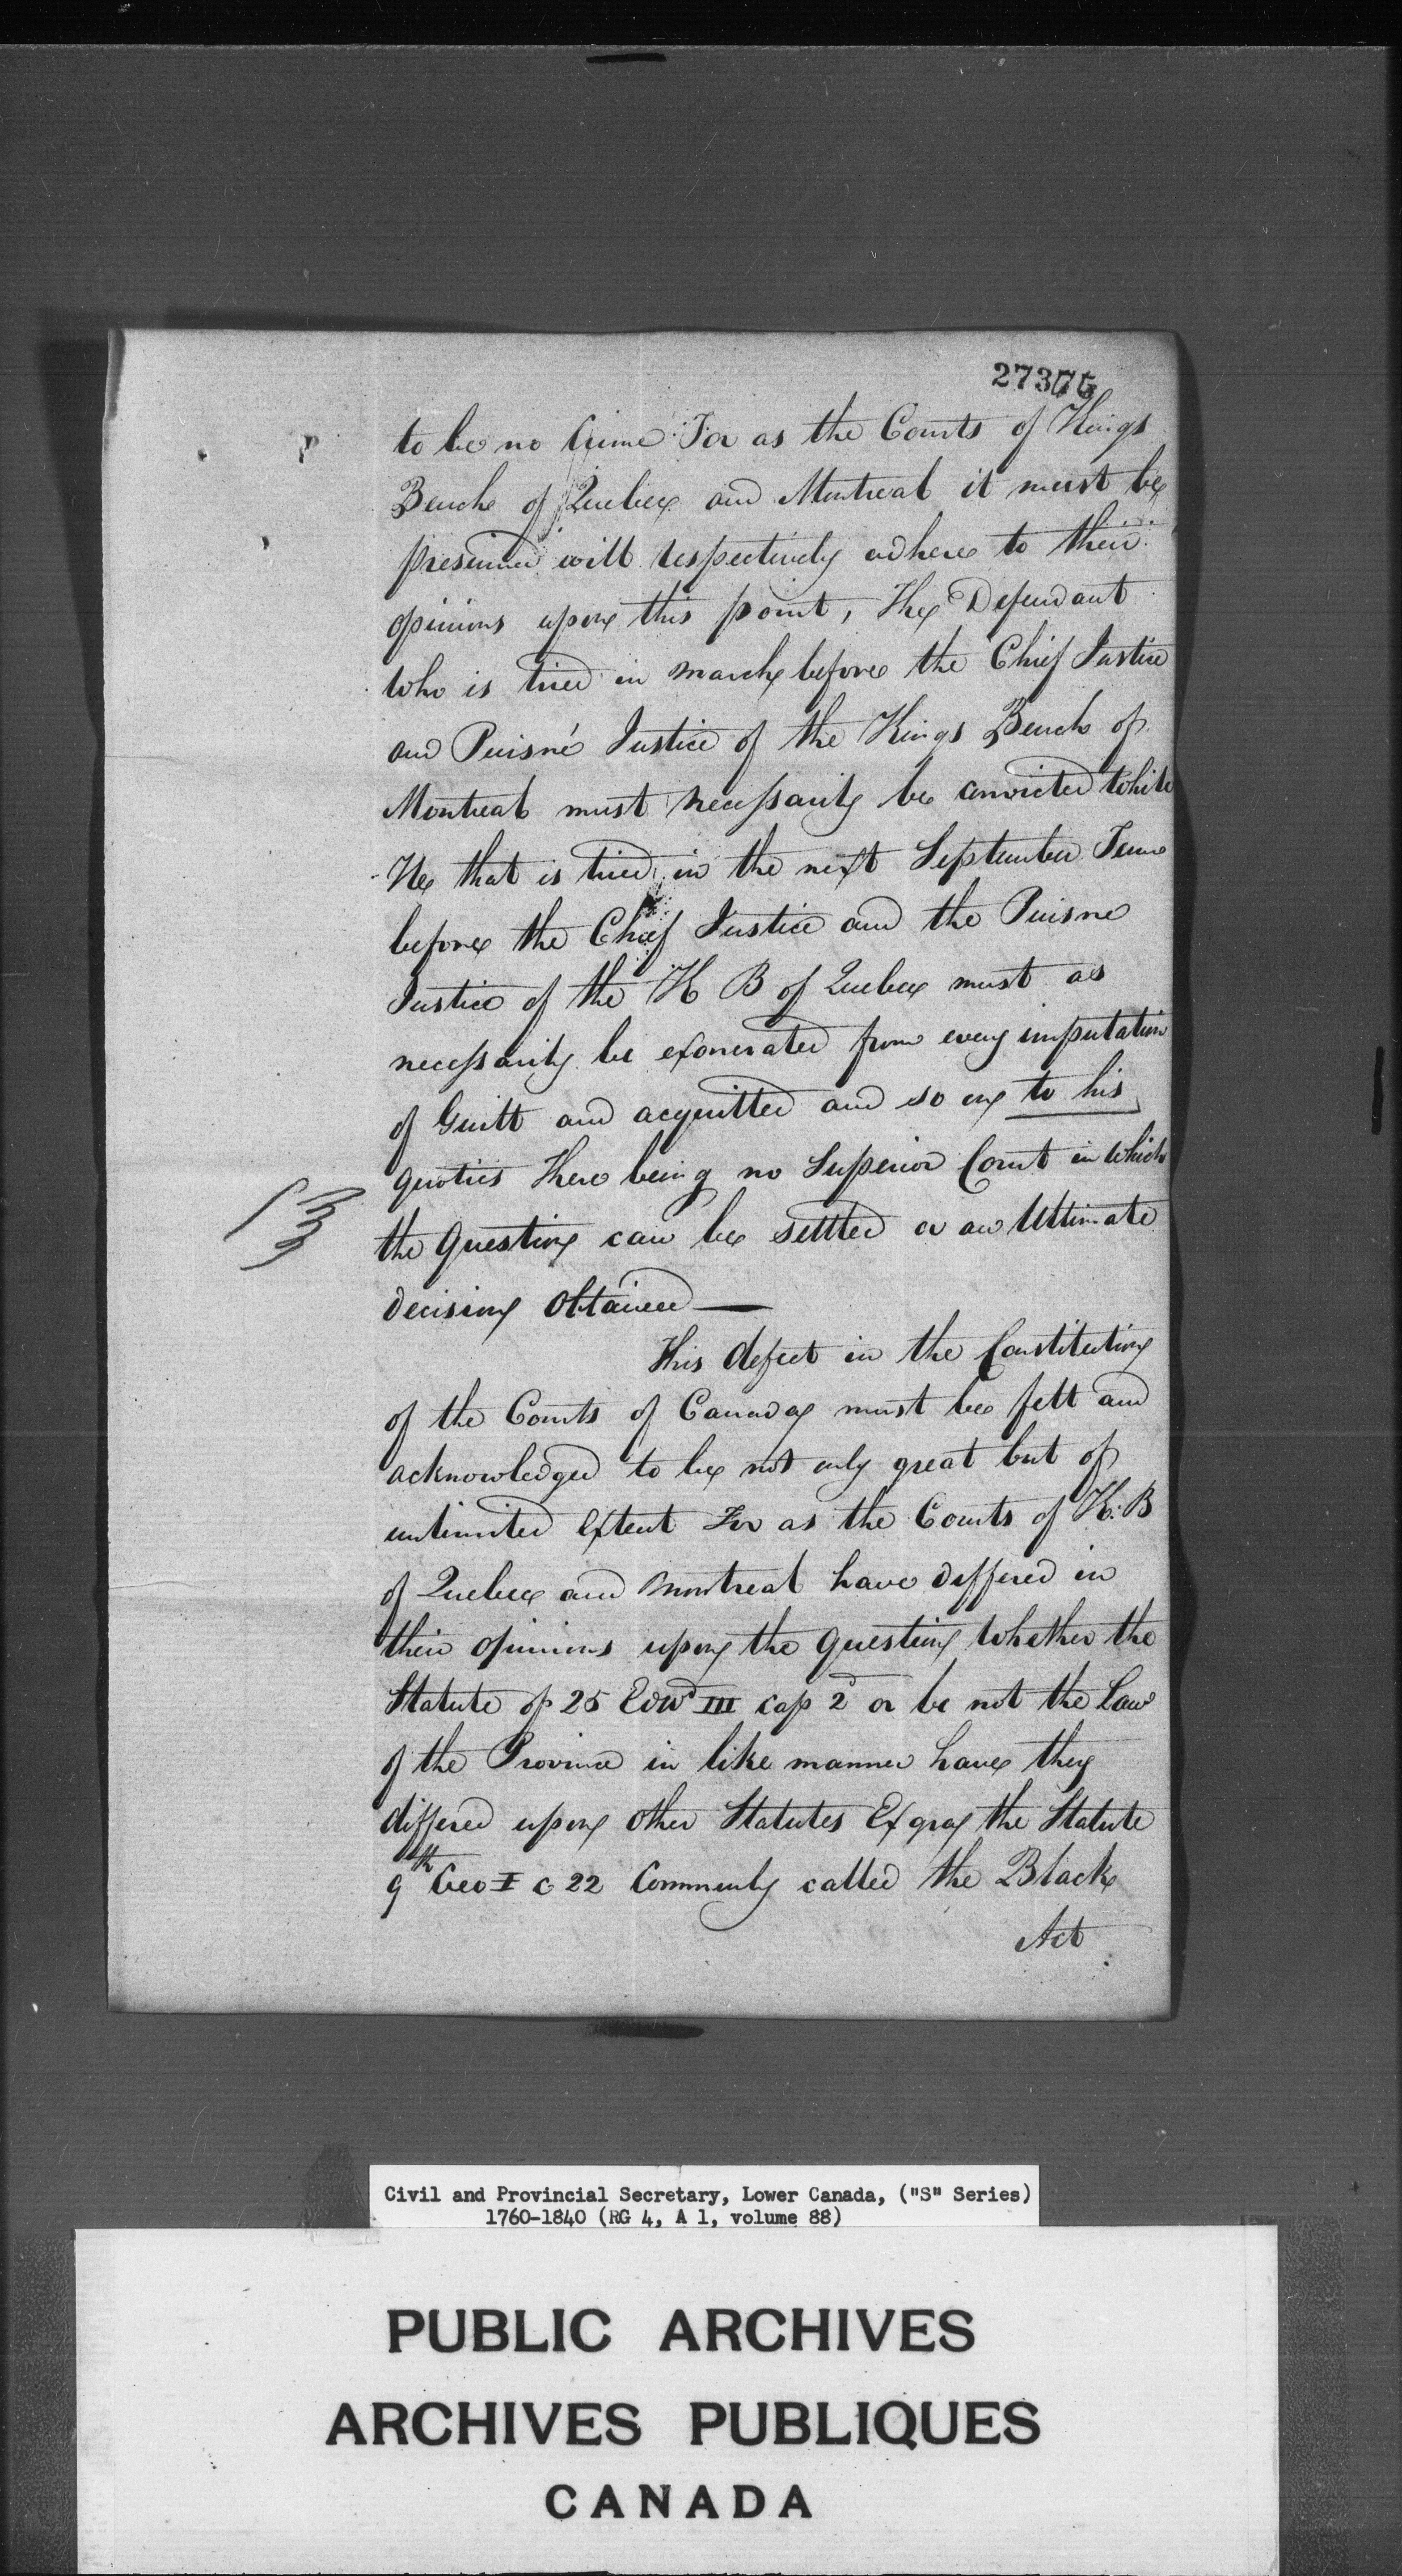 27375
to be no Crime For as the Courts of Kings
Bench of Quebec and Montreal it must be
presumed will respectively adhere to their
opinions upon this point, The Defendant
who is tried in March before the Chief Justice
and Puisné Justice of the Kings Bench of
Montreal must necessarily be convicted while
He that is tried in the next September Term
before the Chief Justice and the Puisne
Justice of the K B of Quebec must as
necessarily be exonerated from every imputation
of Guilt and acquitted and so on to his
quoties There being no Superior Court in which
the Question can be settled or an Ultimate
decision Obtained —
This defect in the Constitution
of the Courts of Canada must be felt and
acknowledged to be not only great but of
unlimited Extent For as the Courts of K. B
of Quebec and Montreal have differed in
their Opinions upon the Question Whether the
Statute of 25 Edwd III cap 2d or be not the Law
of the Province in like manner have they
differed upon other Statutes Ex gra the Statute
9th Geo I c 22 Commonly called the Black
Act
Civil and Provincial Secretary, Lower Canada, ("S" Series)
1760-1840 (RG 4, A 1, volume 88)
PUBLIC ARCHIVES
ARCHIVES PUBLIQUES
CANADA